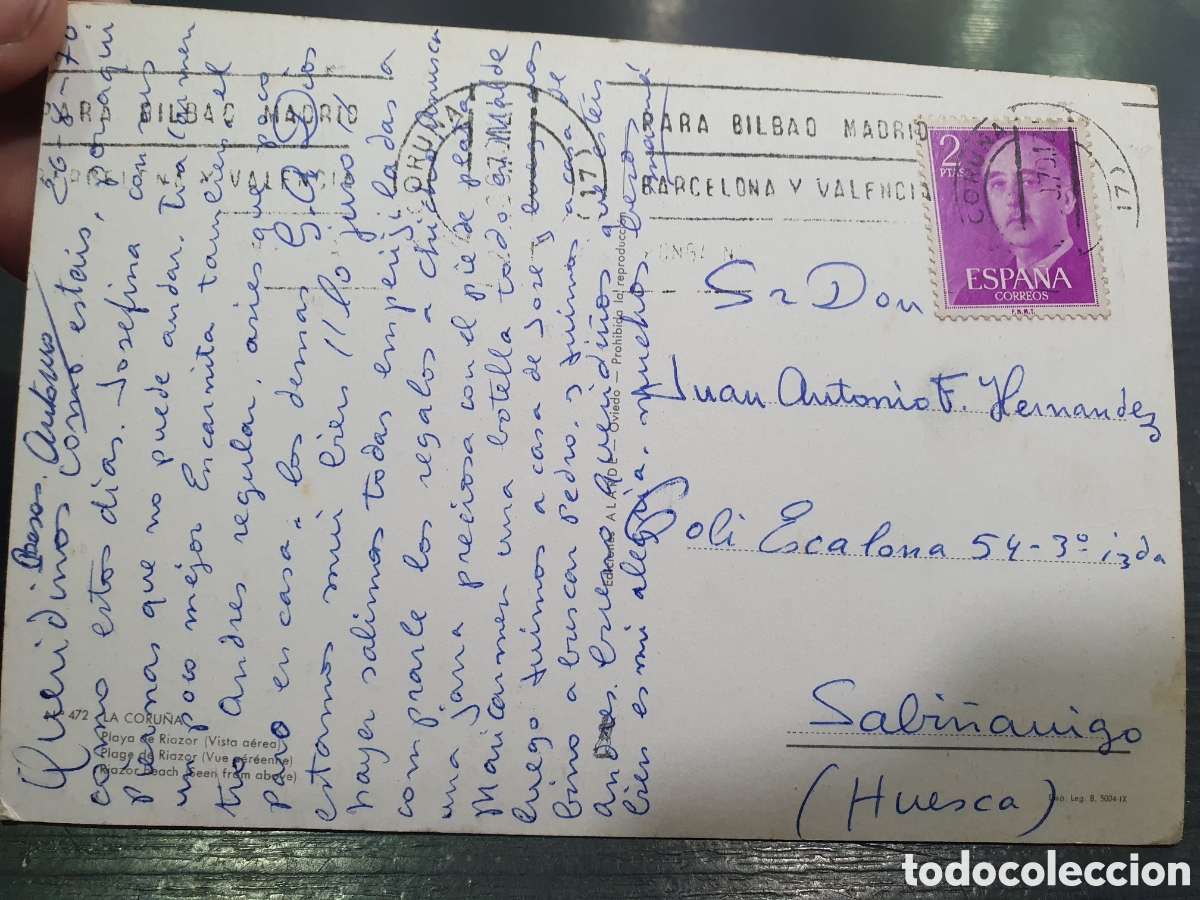 26-8-70
Besos. Antonio
Queridinos como estais, por aqui
como estos dias. Josefina con sus
piernas que no puede andar. Tia Carmen
un poco mejor Encarnita tambien, el
tio Andres regular, asies que poco
paro en casa. los demas G. a Dios
estamos mui bien
hayer salimos todas emperijiladas a
comprarle los regalos a Chicho
una jarra preciosa con el pie de plata
Maricarmen una botella todo
luego fuimos a casa de Jose y luego nos
bino a buscar pedro, y fuimos a casa de
Andres. bueno queridiños que esteis
bien es mi alegria. muchos besos
mamá
PARA BILBAO MADRID
Y VALENCIA
CORUÑA
PARA BILBAO MADRID
BARCELONA Y VALENCIA
CORUÑA
2
PTAS
ESPAÑA
CORREOS
F.N.M.T.
Sr Don
Juan Antonio F. Hernandez
Poli Escalona 54-3º izda
Sabiñanigo
(Huesca)
472 - LA CORUÑA
Playa de Riazor (Vista aérea)
Plage de Riazor (Vue aéreénne)
Riazor beach (Seen from above)
Ediciones ALARDE — Oviedo — Prohibida la reproducción
Dep. Leg. B. 5004-IX
todocoleccion